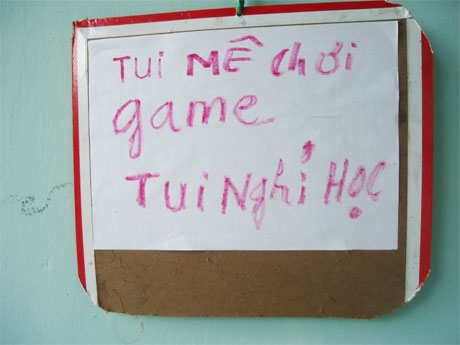 TUI MÊ chơi
game
TUI Nghỉ HỌC